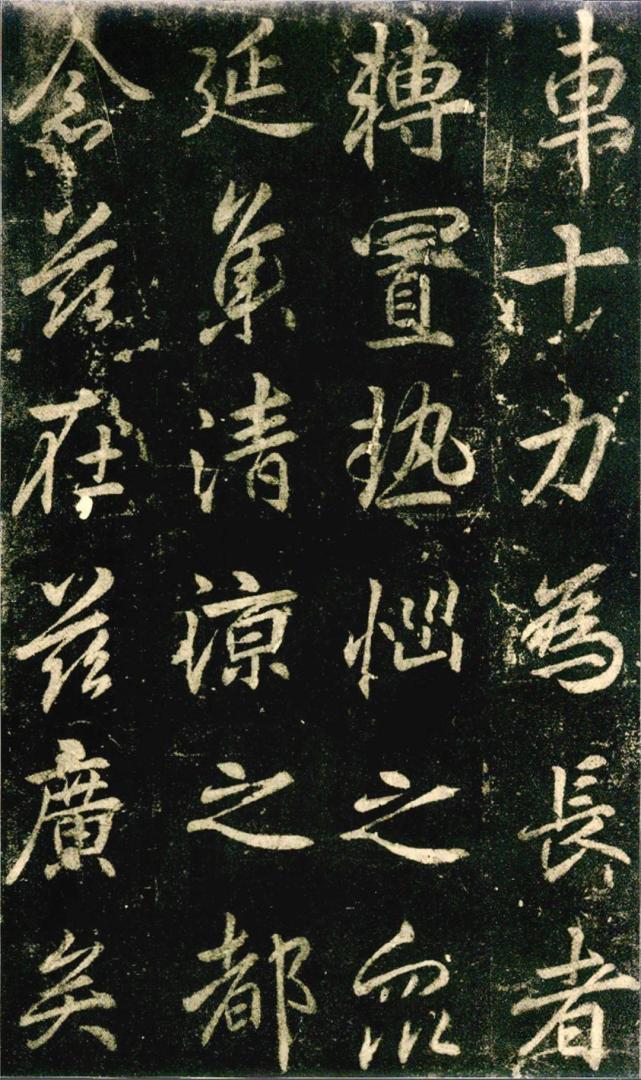 車十力為長者
轉置熱惱之衆
延集清涼之都
念茲在茲廣矣